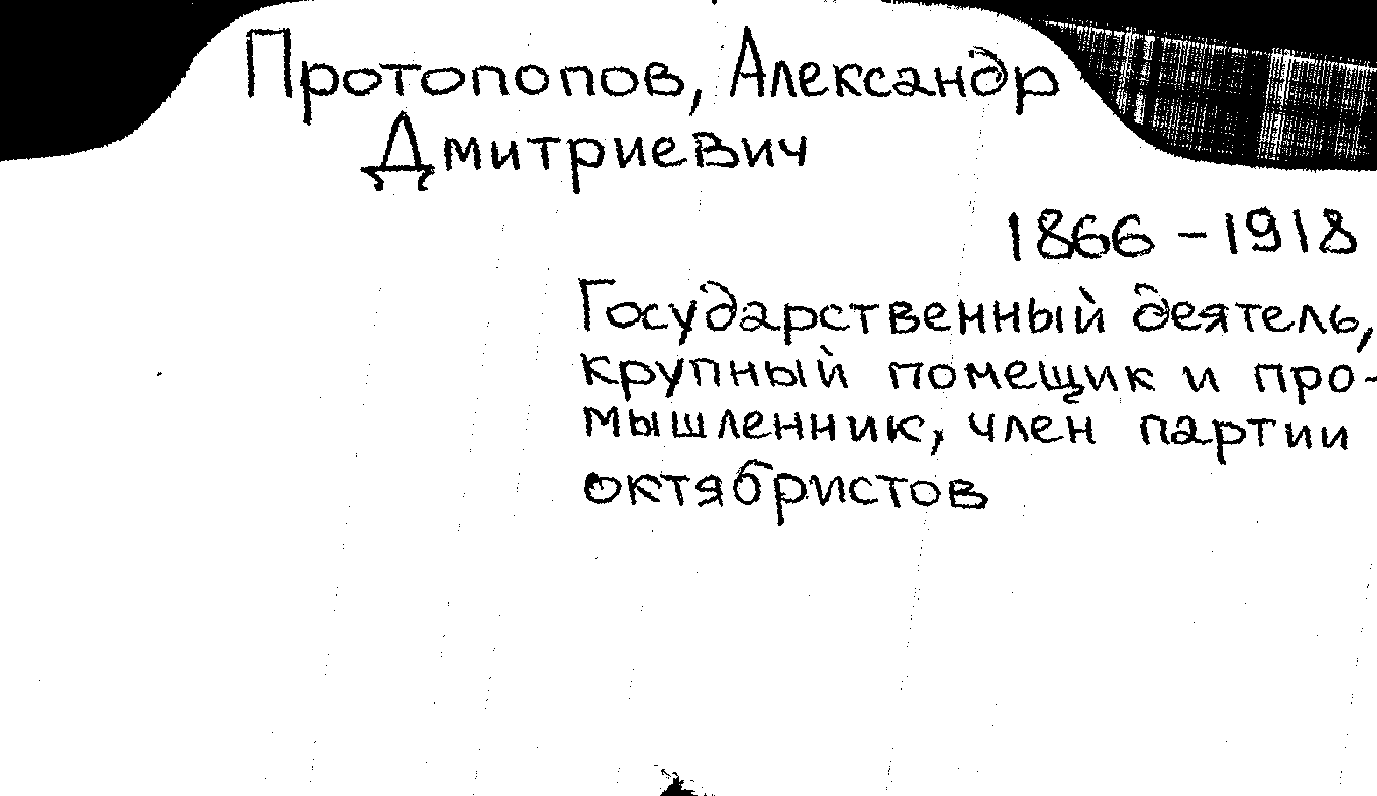 Протопопов, Александр
Дмитриевич
1866 – 1918
Государственный деятель,
крупный помещик и про-
мышленник, член партии
октябристов